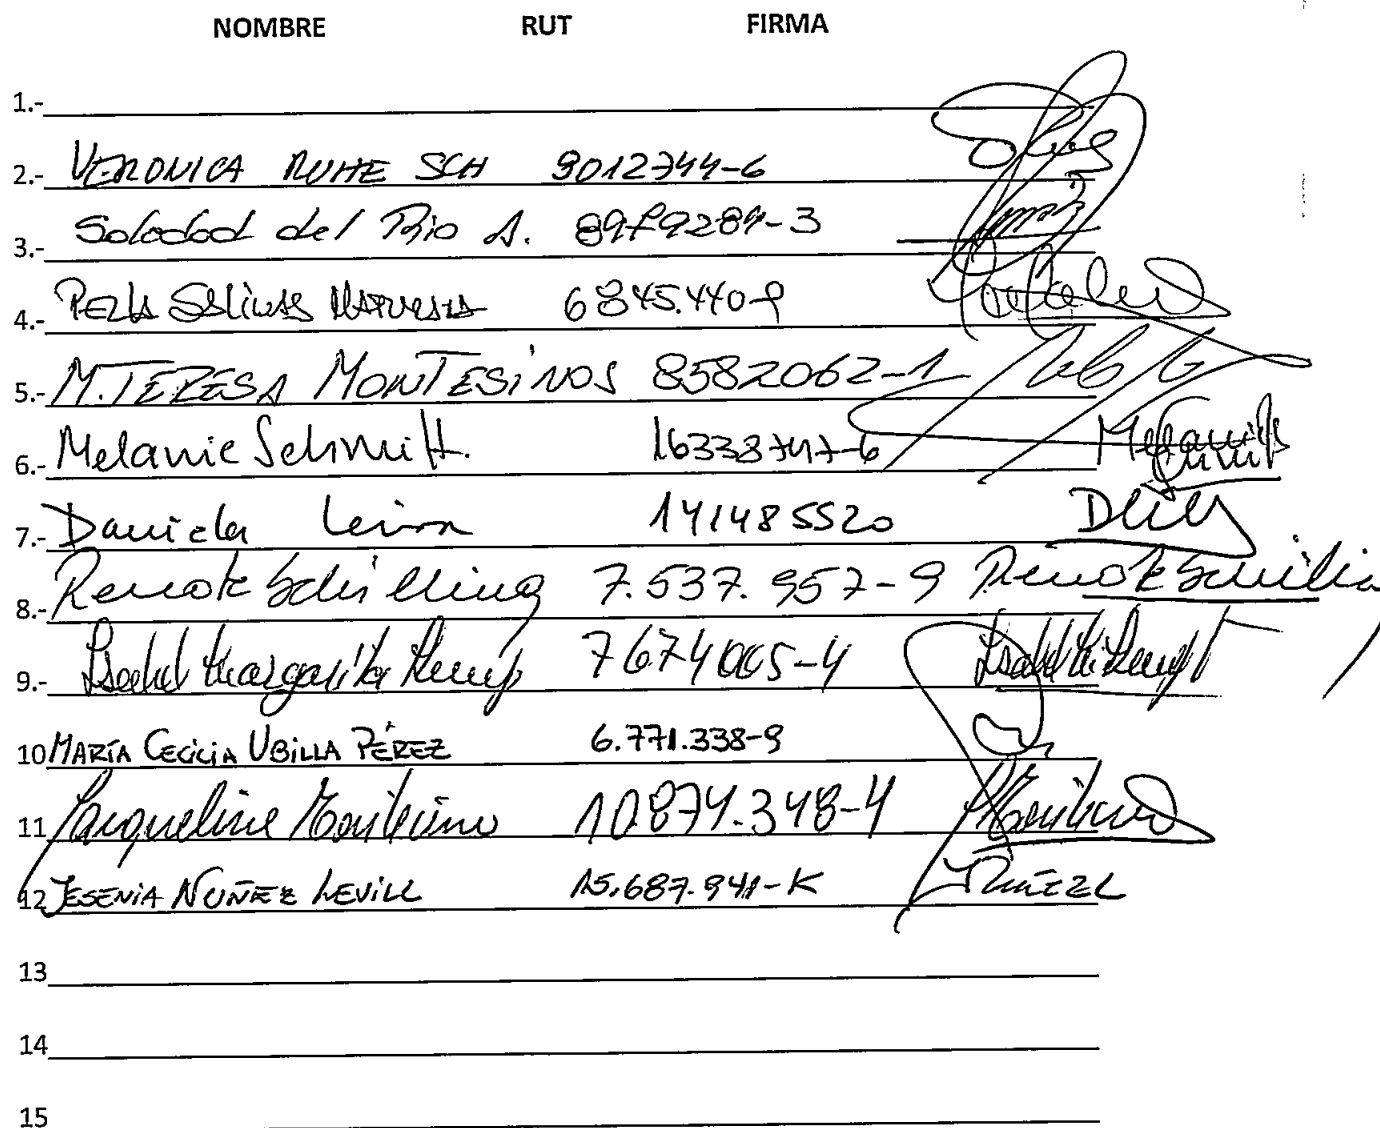 NOMBRE RUT FIRMA
1.-
2.- VERONICA RUHE SCH 9012744-6
3.- Soledad del Rio A. 8979289-3
4.- PERLA SALINAS 6845.440-9
5.- M. TERESA MONTESINOS 8582062-1
6.- Melanie Schmitt. 16338747-6 Melanie Schmitt
7.- Daniela Leiva 141485520
8.- Renate Schilling 7.537.957-9 Renate Schilling
9.- Isabel Margarita Kemp 7674005-4
10 MARÍA CECILIA UBILLA PÉREZ 6.771.338-9
11 Jacqueline 10.874.348-4
12 JESENIA NUÑEZ LEVILL 15.687.941-K
13
14
15